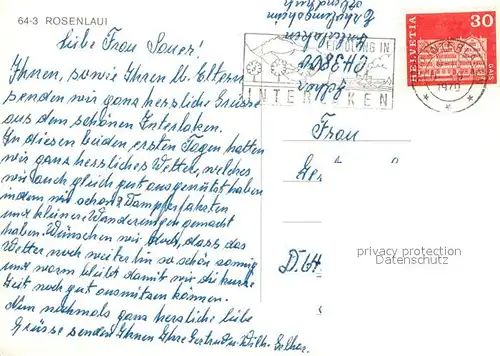 64-3 ROSENLAUI
Liebe Frau Sauer!
Ihnen, sowie Ihren lb. Eltern
senden wir ganz herzliche Grüsse
aus dem schönen Interlaken.
In diesen beiden ersten Tagen hatten
wir ganz herrliches Wetter, welches
wir auch gleich gut ausgenützt haben
indem wir schon Dampferfahrten
und kleinere Wanderungen gemacht
haben. Wünschen wir doch, dass das
Wetter noch weiterhin so schön sonnig
und warm bleibt damit wir die kurze
Zeit noch gut ausnützen können.
Nun nochmals ganz herzliche liebe
Grüsse senden Ihnen Ihre Gertrud u. Wilh. Gelhar.
Interlaken
CH 3800
ERHOLUNG IN
INTERLAKEN
HELVETIA
30
GAIS
1970
Frau
privacy protection
Datenschutz